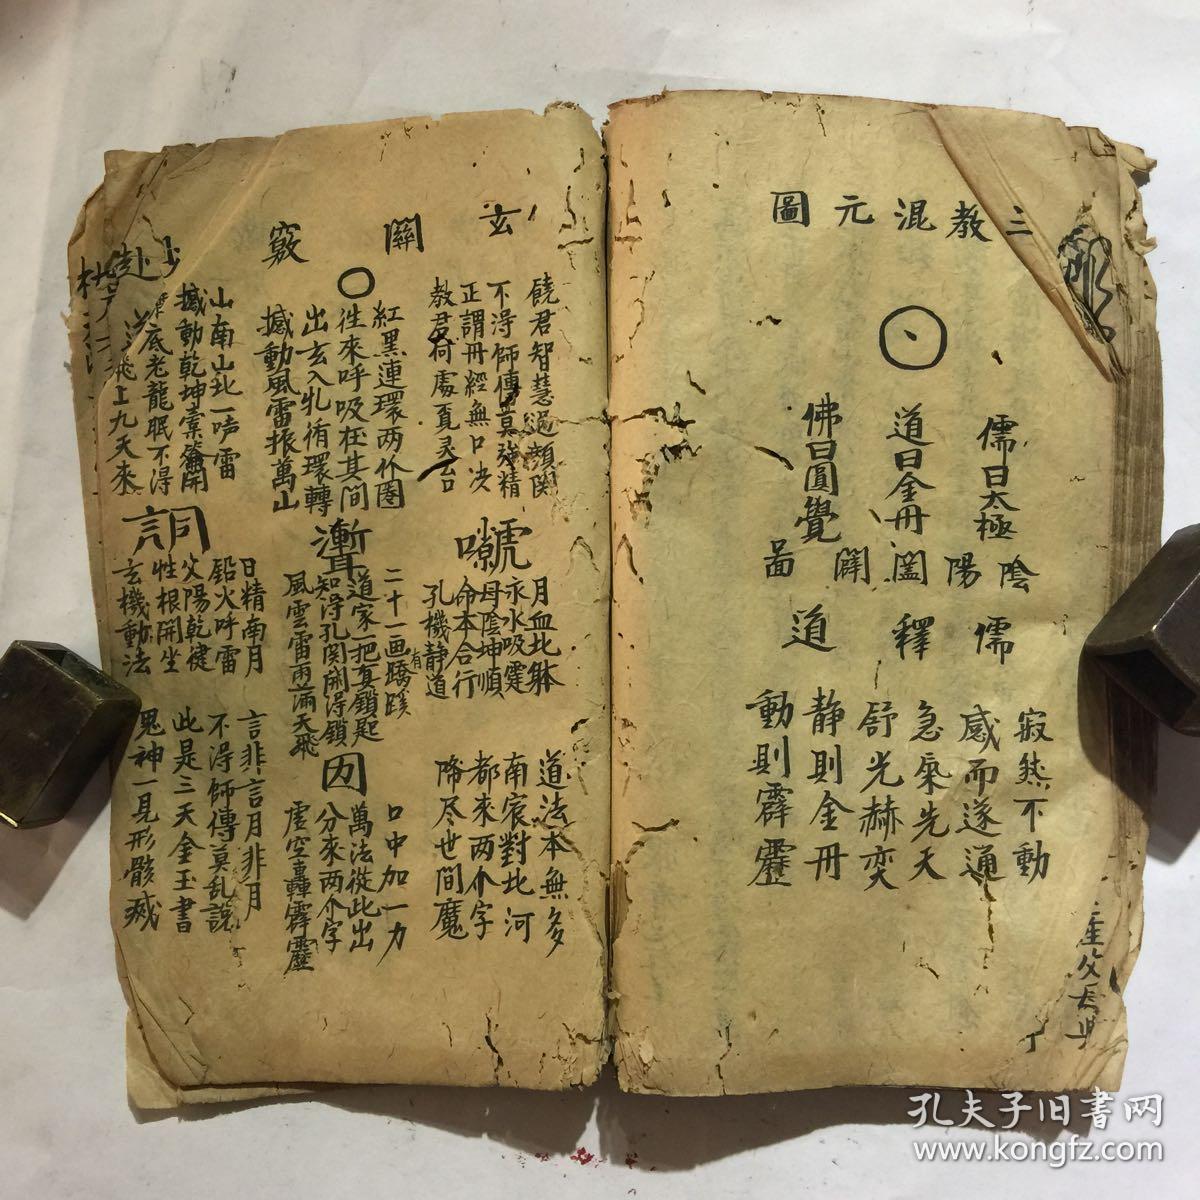 三教混元圖
儒曰太極
道曰金丹
佛曰圓覺
陰陽闔闢啚
儒釋道
寂然不動
感而遂通
急炁先天
舒光赫奕
静則金丹
動則霹靂
玄關竅
饒君智慧過顏閔
不淂師傳莫強精
正謂丹經無口决
教君何處覔灵台
紅黑連環两个圈
徃來呼吸在其間
出玄入牝循環轉
撼動風雷振萬山
山南山北一声雷
撼動乾坤橐籥開
底老龍眠不得
飛上九天來
月血比躰
永水吸霆
母陰坤順
命本合行
孔機静道
二十一画有蹊蹺
道家一把真鎖匙
知得孔関開得鎖
風雲雷雨滿天飛
詞
日精南月
鉛火呼雷
父陽乾健
性根開坐
玄機動法
道法本無多
南宸對北河
都來两个字
降尽世間魔
囡
口中加一力
萬法從此出
分來两个字
虚空轟霹靂
言非言月非月
不得師傳莫乱說
此是三天金玉書
鬼神一見形骸滅
孔夫子旧書网
www.kongfz.com